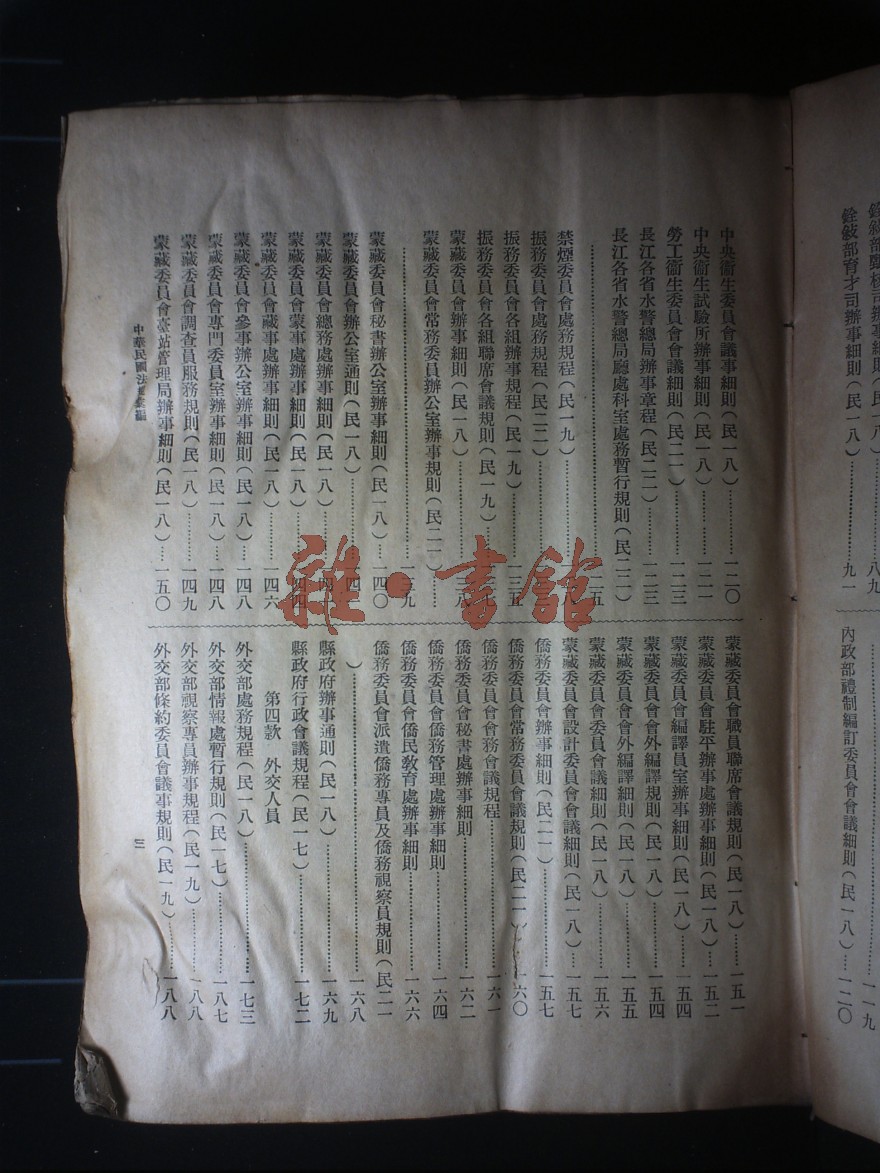 銓敍部育才司辦事細則(民一八)……九一
內政部禮制編訂委員會會議細則(民一八)…一二〇
中央衞生委員會議事細則(民一八)……一二〇
中央衞生試驗所辦事細則(民一八)……一二一
勞工衞生委員會會議細則(民二一)……一二三
長江各省水警總局辦事章程(民二二)……一二三
長江各省水警總局廳處科室處務暫行規則(民二二)
禁煙委員會處務規程(民一九)
振務委員會處務規程(民二二)
振務委員會各組辦事規程(民一九)……一三五
振務委員會各組聯席會議規則(民一九)
蒙藏委員會辦事細則(民一八)
蒙藏委員會常務委員辦公室辦事規則(民二一)
……一三九
蒙藏委員會秘書辦公室辦事細則(民一八)…一四〇
蒙藏委員會辦公室通則(民一八)
蒙藏委員會總務處辦事細則(民一八)
蒙藏委員會蒙事處辦事細則(民一八)…一四四
蒙藏委員會藏事處辦事細則(民一八)…一四六
蒙藏委員會參事辦公室辦事細則(民一八)…一四八
蒙藏委員會專門委員室辦事細則(民一八)…一四八
蒙藏委員會調查員服務規則(民一八)……一四九
蒙藏委員會臺站管理局辦事細則(民一八)…一五〇
蒙藏委員會職員聯席會議規則(民一八)……一五一
蒙藏委員會駐平辦事處辦事細則(民一八)…一五二
蒙藏委員會編譯員室辦事細則(民一八)……一五四
蒙藏委員會會外編譯規則(民一八)……一五四
蒙藏委員會會外編譯細則(民一八)……一五五
蒙藏委員會委員會議細則(民一八)……一五六
蒙藏委員會設計委員會會議細則(民一八)…一五七
僑務委員會辦事細則(民二一)……一五七
僑務委員會常務委員會議規則(民二一)…一六〇
僑務委員會會務會議規程……一六一
僑務委員會秘書處辦事細則……一六二
僑務委員會僑務管理處辦事細則……一六四
僑務委員會僑民敎育處辦事細則……一六六
僑務委員會派遣僑務專員及僑務視察員規則(民二一
)……一六八
縣政府辦事通則(民一八)……一六九
縣政府行政會議規程(民一七)……一七二
第四款 外交人員
外交部處務規程(民一八)……一七三
外交部情報處暫行規則(民一七)……一八七
外交部視察專員辦事規程(民一九)……一八八
外交部條約委員會議事規則(民一九)……一八八
三
雜·書館